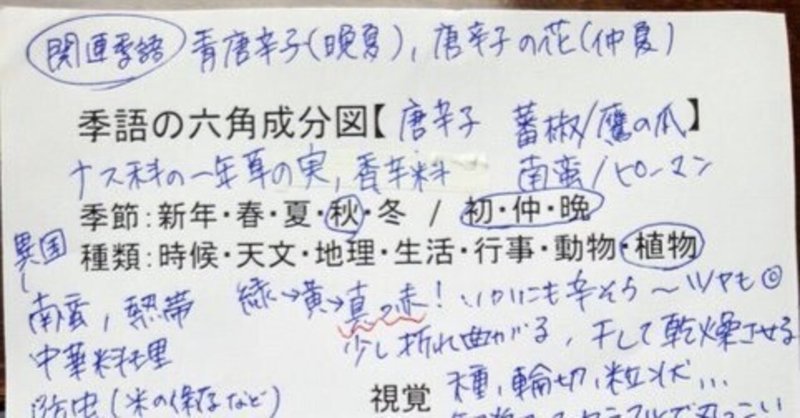 関連季語 青唐辛子(晩夏), 唐辛子の花(仲夏)
季語の六角成分図【唐辛子 蕃椒/鷹の爪】
ナス科の一年草の実, 香辛料 南蛮/ピーマン
季節:新年・春・夏・秋・冬 / 初・仲・晩
種類:時候・天文・地理・生活・行事・動物・植物
異国
南蛮, 熱帯
中華料理
防虫(米の保存など)
緑→黄→真っ赤! いかにも辛そう〜ツヤも
少し折れ曲がる, 干して乾燥させる
視覚 種, 輪切, 粒状...